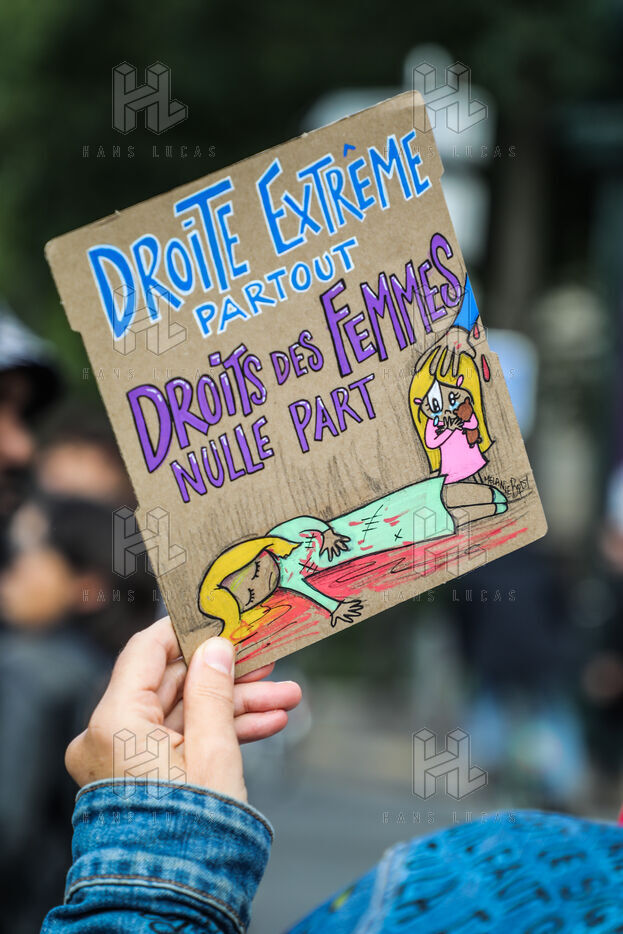 DROITE EXTRÊME
PARTOUT
DROITS DES FEMMES
NULLE PART
HANS LUCAS
HANS LUCAS
HANS LUCAS
HANS LUCAS
HANS LUCAS
HANS LUCAS
HANS LUCAS
HANS LUCAS